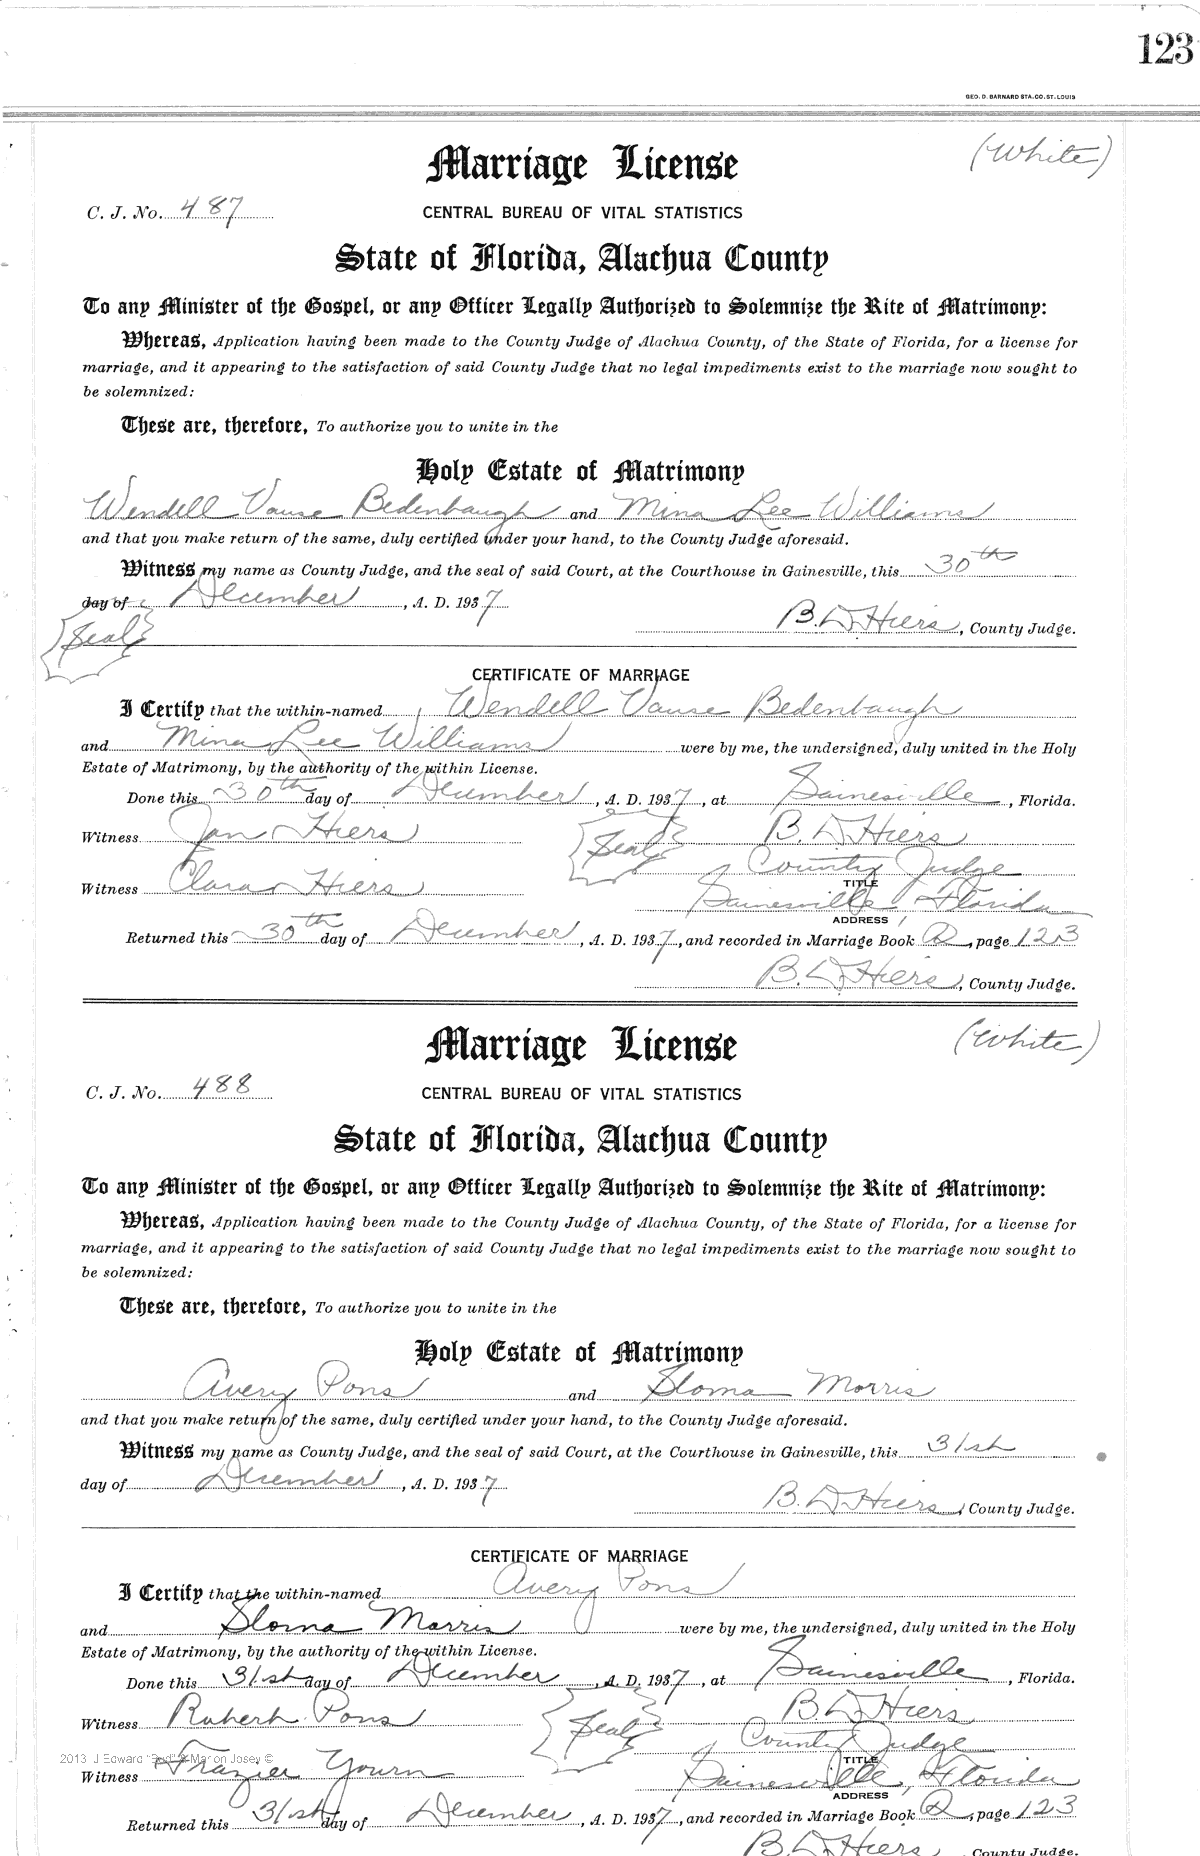 123
GEO. D. BARNARD STA. CO. ST. LOUIS
(White)
Marriage License
C. J. No. 487
CENTRAL BUREAU OF VITAL STATISTICS
State of Florida, Alachua County
To any Minister of the Gospel, or any Officer Legally Authorized to Solemnize the Rite of Matrimony:
Whereas, Application having been made to the County Judge of Alachua County, of the State of Florida, for a license for
marriage, and it appearing to the satisfaction of said County Judge that no legal impediments exist to the marriage now sought to
be solemnized:
These are, therefore, To authorize you to unite in the
Holy Estate of Matrimony
Wendell Vause Bedenbaugh and Mina Lee Williams
and that you make return of the same, duly certified under your hand, to the County Judge aforesaid.
Witness my name as County Judge, and the seal of said Court, at the Courthouse in Gainesville, this 30th
day of December, A. D. 1937
Seal
B. D. Hiers, County Judge.
CERTIFICATE OF MARRIAGE
I Certify that the within-named Wendell Vause Bedenbaugh
and Mina Lee Williams were by me, the undersigned, duly united in the Holy
Estate of Matrimony, by the authority of the within License.
Done this 30th day of December, A. D. 1937, at Gainesville, Florida.
Witness Jan Hiers Seal B. D. Hiers
County Judge
TITLE
Witness Clara Hiers
Gainesville, Florida
ADDRESS
Returned this 30th day of December, A. D. 1937, and recorded in Marriage Book Q, page 123
B. D. Hiers, County Judge.
(White)
Marriage License
C. J. No. 488
CENTRAL BUREAU OF VITAL STATISTICS
State of Florida, Alachua County
To any Minister of the Gospel, or any Officer Legally Authorized to Solemnize the Rite of Matrimony:
Whereas, Application having been made to the County Judge of Alachua County, of the State of Florida, for a license for
marriage, and it appearing to the satisfaction of said County Judge that no legal impediments exist to the marriage now sought to
be solemnized:
These are, therefore, To authorize you to unite in the
Holy Estate of Matrimony
Avery Pons and Sloma Morris
and that you make return of the same, duly certified under your hand, to the County Judge aforesaid.
Witness my name as County Judge, and the seal of said Court, at the Courthouse in Gainesville, this 31st
day of December, A. D. 1937
B. D. Hiers, County Judge.
CERTIFICATE OF MARRIAGE
I Certify that the within-named Avery Pons
and Sloma Morris were by me, the undersigned, duly united in the Holy
Estate of Matrimony, by the authority of the within License.
Done this 31st day of December, A. D. 1937, at Gainesville, Florida.
Witness Robert Pons Seal B. D. Hiers
County Judge
2013 J Edward "Bud" & Marion Josey ©
TITLE
Witness Frazier Gainesville, Florida
ADDRESS
Returned this 31st day of December, A. D. 1937, and recorded in Marriage Book Q, page 123
B. D. Hiers, County Judge.